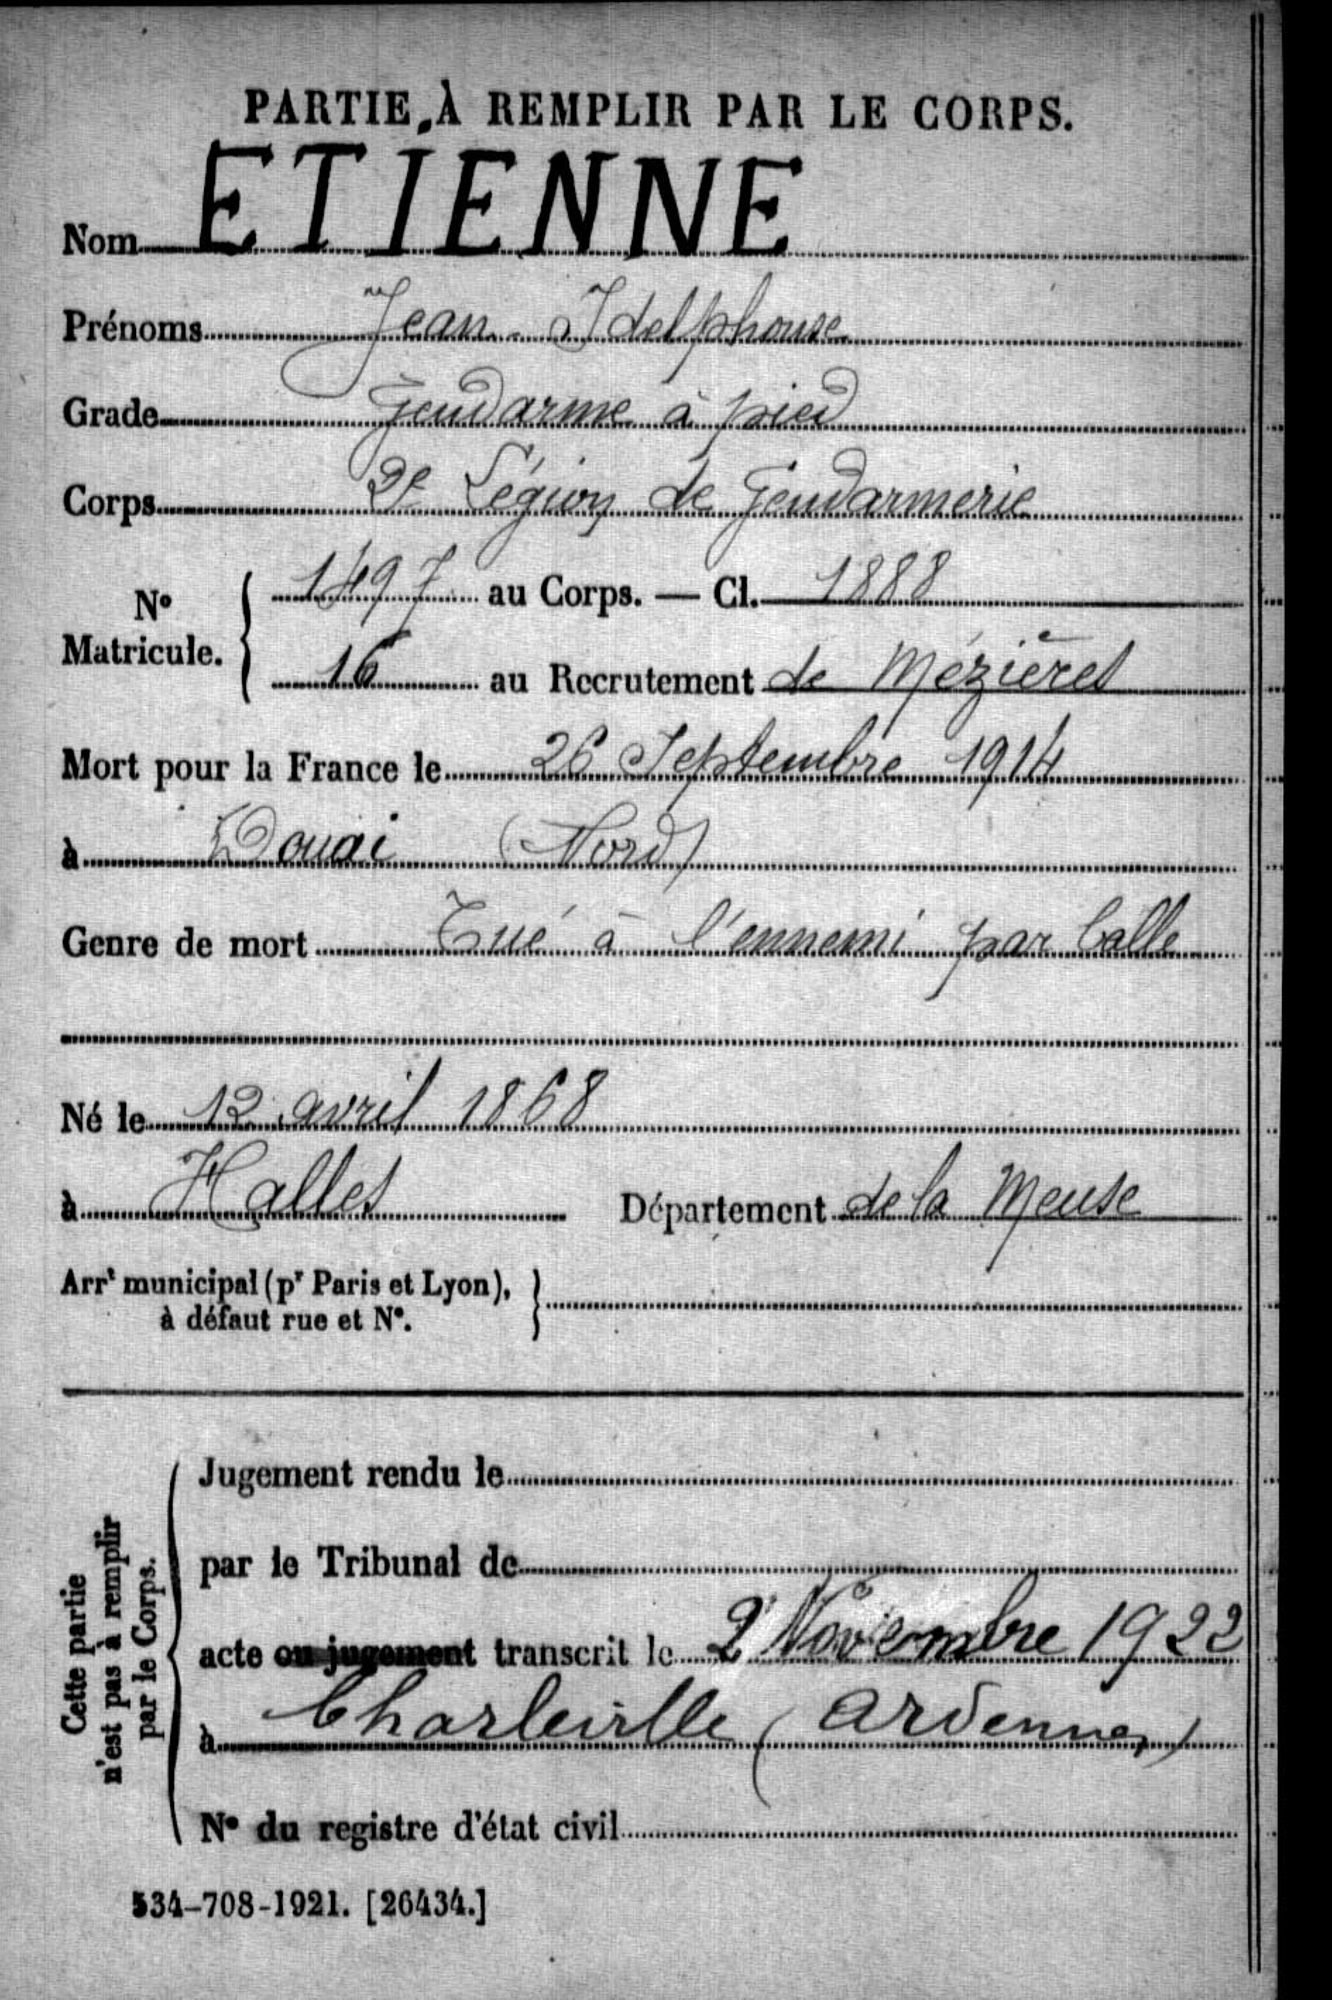 PARTIE À REMPLIR PAR LE CORPS.
Nom ETIENNE
Prénoms Jean Idelphouse
Grade Gendarme à pied
Corps 2e Légion de Gendarmerie
N° Matricule. { 1497 au Corps. — Cl. 1888
16 au Recrutement de Mézières
Mort pour la France le 26 Septembre 1914
à Douai (Nord)
Genre de mort Tué à l'ennemi par balle
Né le 12 avril 1868
à Halles Département de la Meuse
Arrt municipal (pr Paris et Lyon), }
à défaut rue et N°.
Cette partie
n'est pas à remplir
par le Corps.
Jugement rendu le
par le Tribunal de
acte ou jugement transcrit le 2 Novembre 1922
à Charleville (Ardennes)
N° du registre d'état civil
534-708-1921. [26434.]